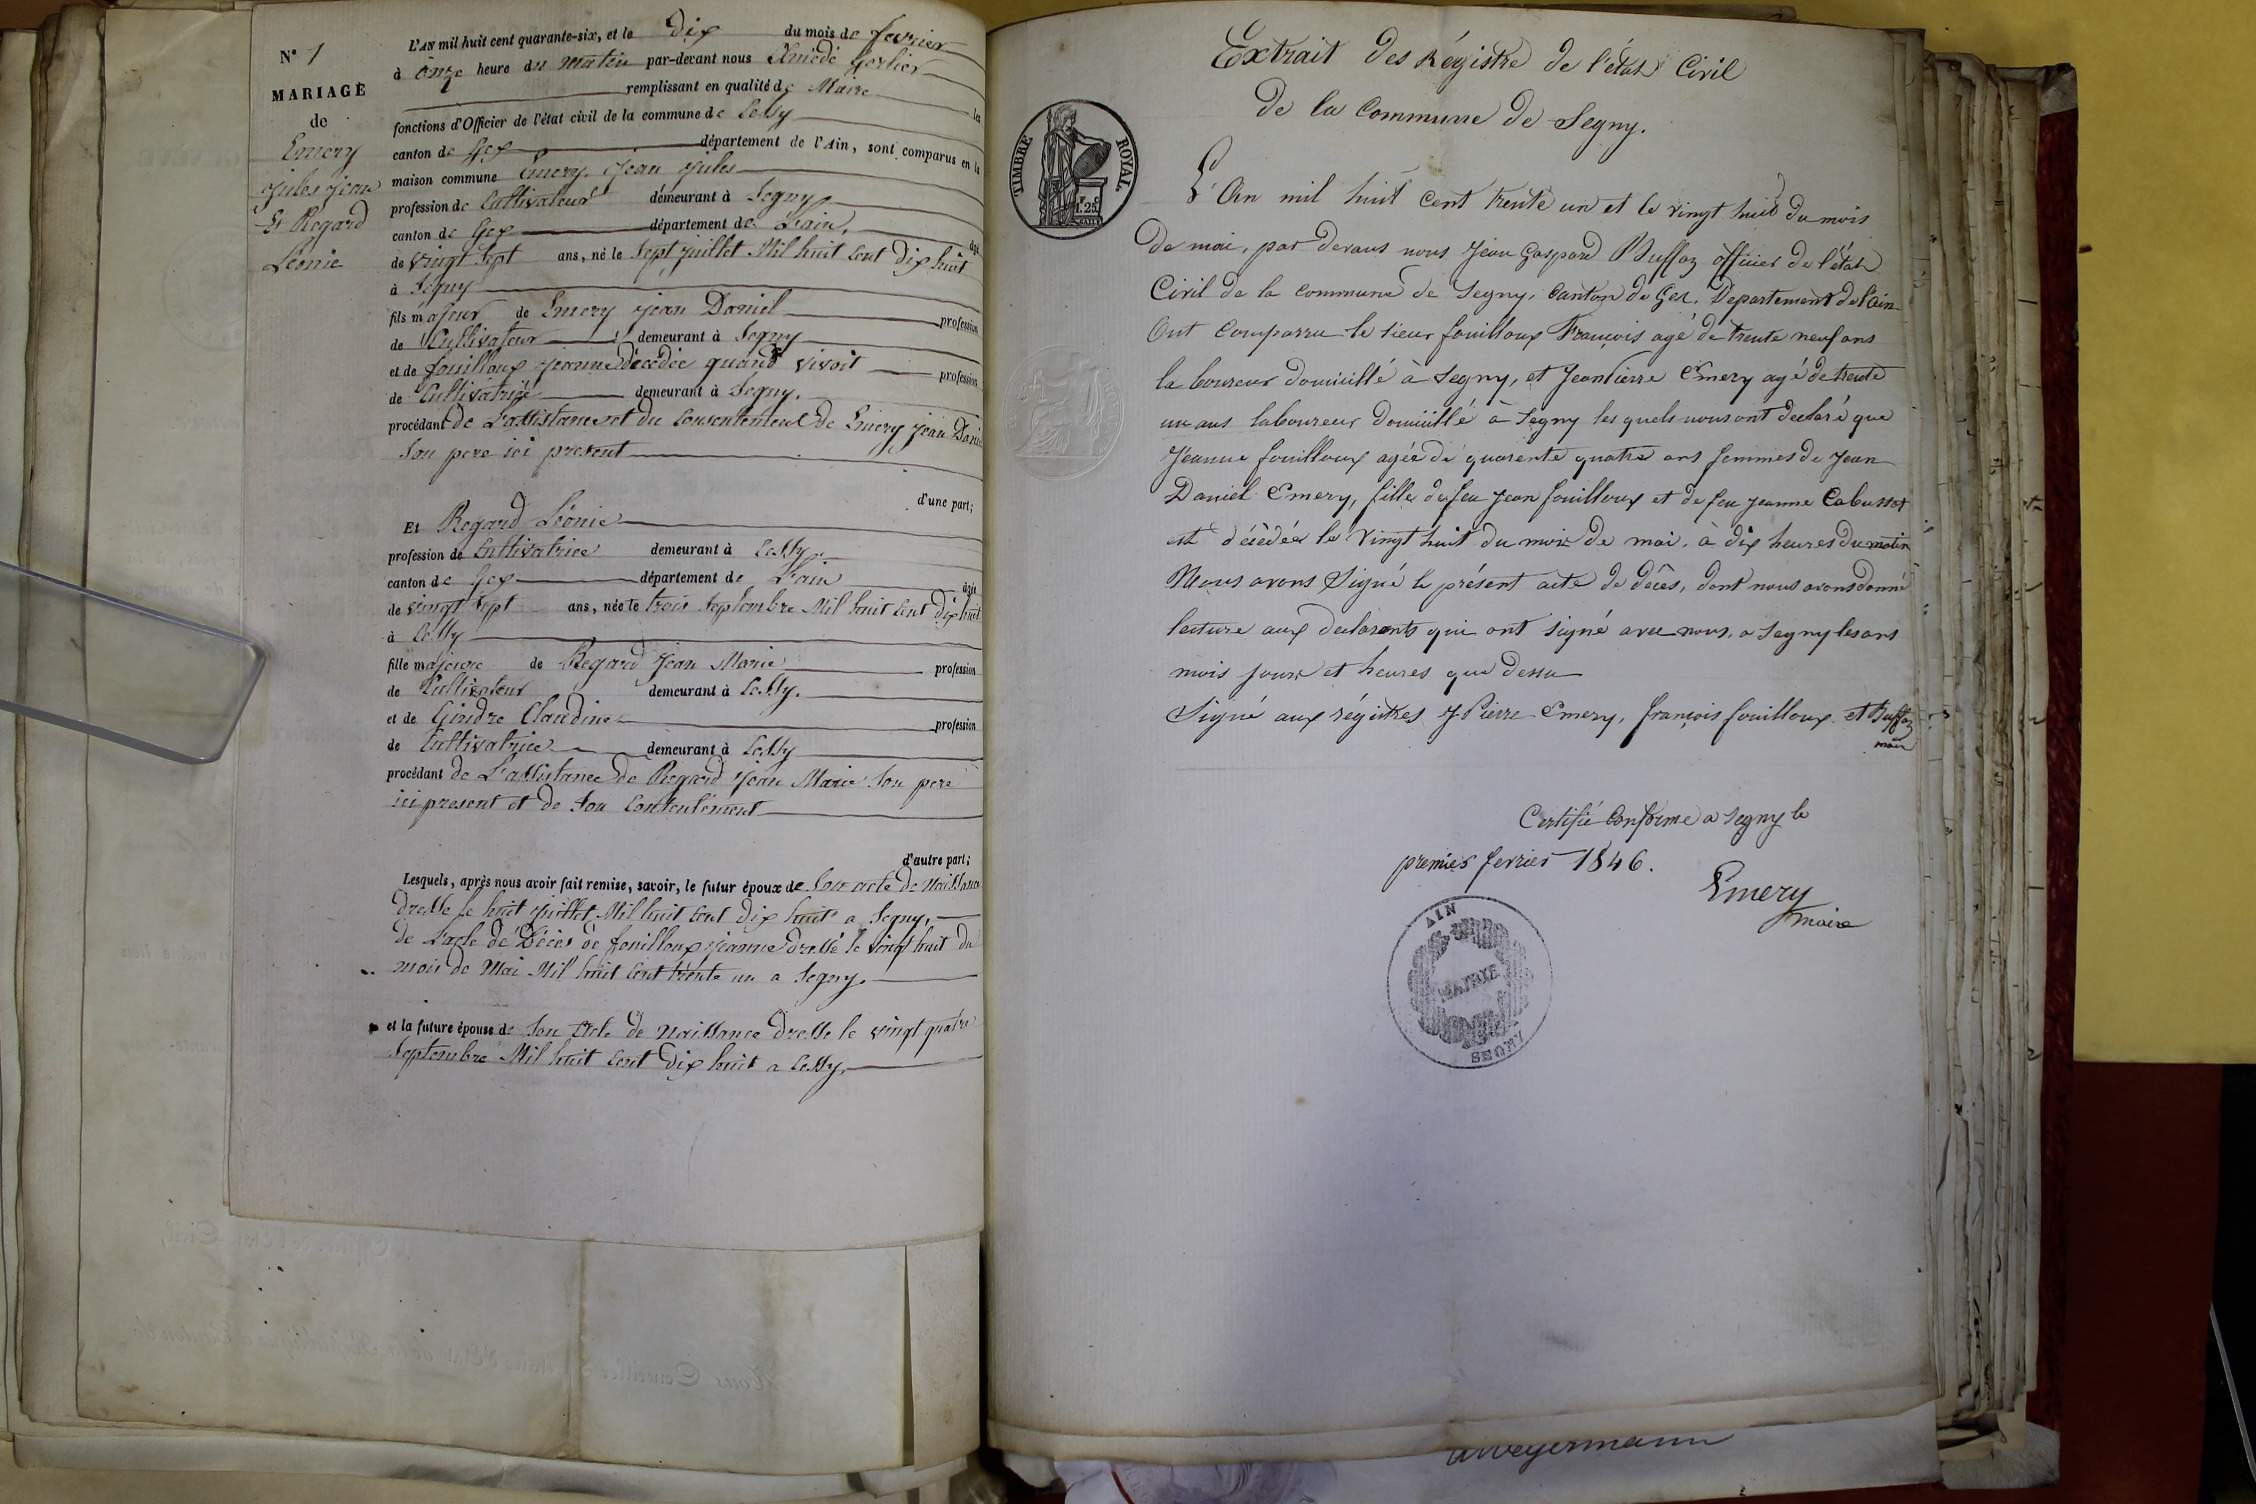 N° 1
MARIAGE
de
Emery
Jules Jean
Et Regard
Léonie
L'AN mil huit cent quarante-six, et le dix du mois de fevrier
à onze heure du matin par-devant nous Amédé Gerlier
remplissant en qualité de Maire les
fonctions d'Officier de l'état civil de la commune de Cessy
canton de Gex département de l'Ain, sont comparus en la
maison commune Emery Jean Jules
profession de Cultivateur demeurant à Segny
canton de Gex département de L'ain, âgé
de vingt sept ans, né le Sept juillet Mil huit Cent Dix huit
à Segny
fils majeur de Emery Jean Daniel profession
de Cultivateur demeurant à Segny
et de fouilloux Jeanne décédée quand vivoit profession
de Cultivatrice demeurant à Segny.
procédant de L'assistance et du Consentement de Emery Jean Daniel
Son pere ici present
d'une part;
Et Regard Léonie
profession de Cultivatrice demeurant à Cessy.
canton de Gex département de L'ain âgée
de vingt sept ans, née le trois Septembre Mil huit Cent Dix huit
à Cessy
fille majeure de Regard Jean Marie profession
de Cultivateur demeurant à Cessy.
et de Gindre Claudine profession
de Cultivatrice demeurant à Cessy
procédant de L'assistance de Regard Jean Marie Son pere
ici present et de Son Consentement
d'autre part;
Lesquels, après nous avoir fait remise, savoir, le futur époux de Son acte de Naissance
dressé le huit juillet Mil huit Cent Dix huit a Segny,
de L'acte de Décès de fouilloux Jeanne dressé le vingt huit du
mois de Mai Mil huit Cent trente un a Segny.
et la future épouse de Son acte de Naissance dressé le vingt quatre
Septembre Mil huit Cent Dix huit a Cessy.
Extrait des Régistre de l'état Civil
de la Commune de Segny.
TIMBRE ROYAL
1.25
L'An mil huit cent trente un et le vingt huit du mois
de mai, par devans nous Jean Gaspard Buffaz officier de l'état
Civil de la commune de Segny, Canton de Gex. Departement de l'ain
Ont Comparru le sieur fouilloux François agé de trente neuf ans
laboureur domicillé à Segny, et Jean Pierre Emery agé de trente
un ans laboureur domicillé à Segny les quels nous ont declaré que
Jeanne fouilloux agée de quarente quatre ans femmes de Jean
Daniel Emery, fille de feu Jean fouilloux et de feu Jeanne Cabusset
est décédée le vingt huit du mois de mai. à dix heures du matin
Nous avons Signé le présent acte de décês, dont nous avons donné
lecture aux declarants qui ont signé avec nous, a Segny les ans
mois jours et heures que dessu
Signé aux régistres J Pierre Emery, françois fouilloux et Buffaz
maire
Certifié Conforme a Segny le
premier fevrier 1846.
Emery
maire
AIN
MAIRIE
SEGNY
Weyermann